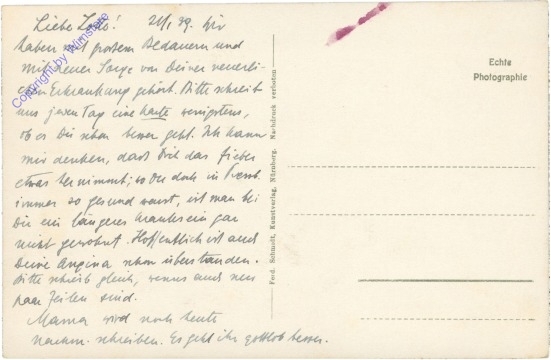 Liebe Lolo! 21/1.39. Wir
haben mit großem Bedauern und
mit neuer Sorge von Deiner neuerli-
chen Erkrankung gehört. Bitte schreib
uns jeden Tag eine Karte wenigstens,
ob es Dir schon besser geht. Ich kann
mir denken, dass Dich das Fieber
etwas hernimmt; wo Du doch in
immer so gesund warst, ist man bei
Dir ein längeres Kranksein gar
nicht gewohnt. Hoffentlich ist auch
Deine Angina schon überstanden.
Bitte schreib gleich, wenns auch nur
paar Zeilen sind.
Mama wird noch heute
nachm. schreiben. Es geht ihr gottlob besser.
Copyright by Wimstore
Ferd. Schmidt, Kunstverlag, Nürnberg. Nachdruck verboten
Echte
Photographie